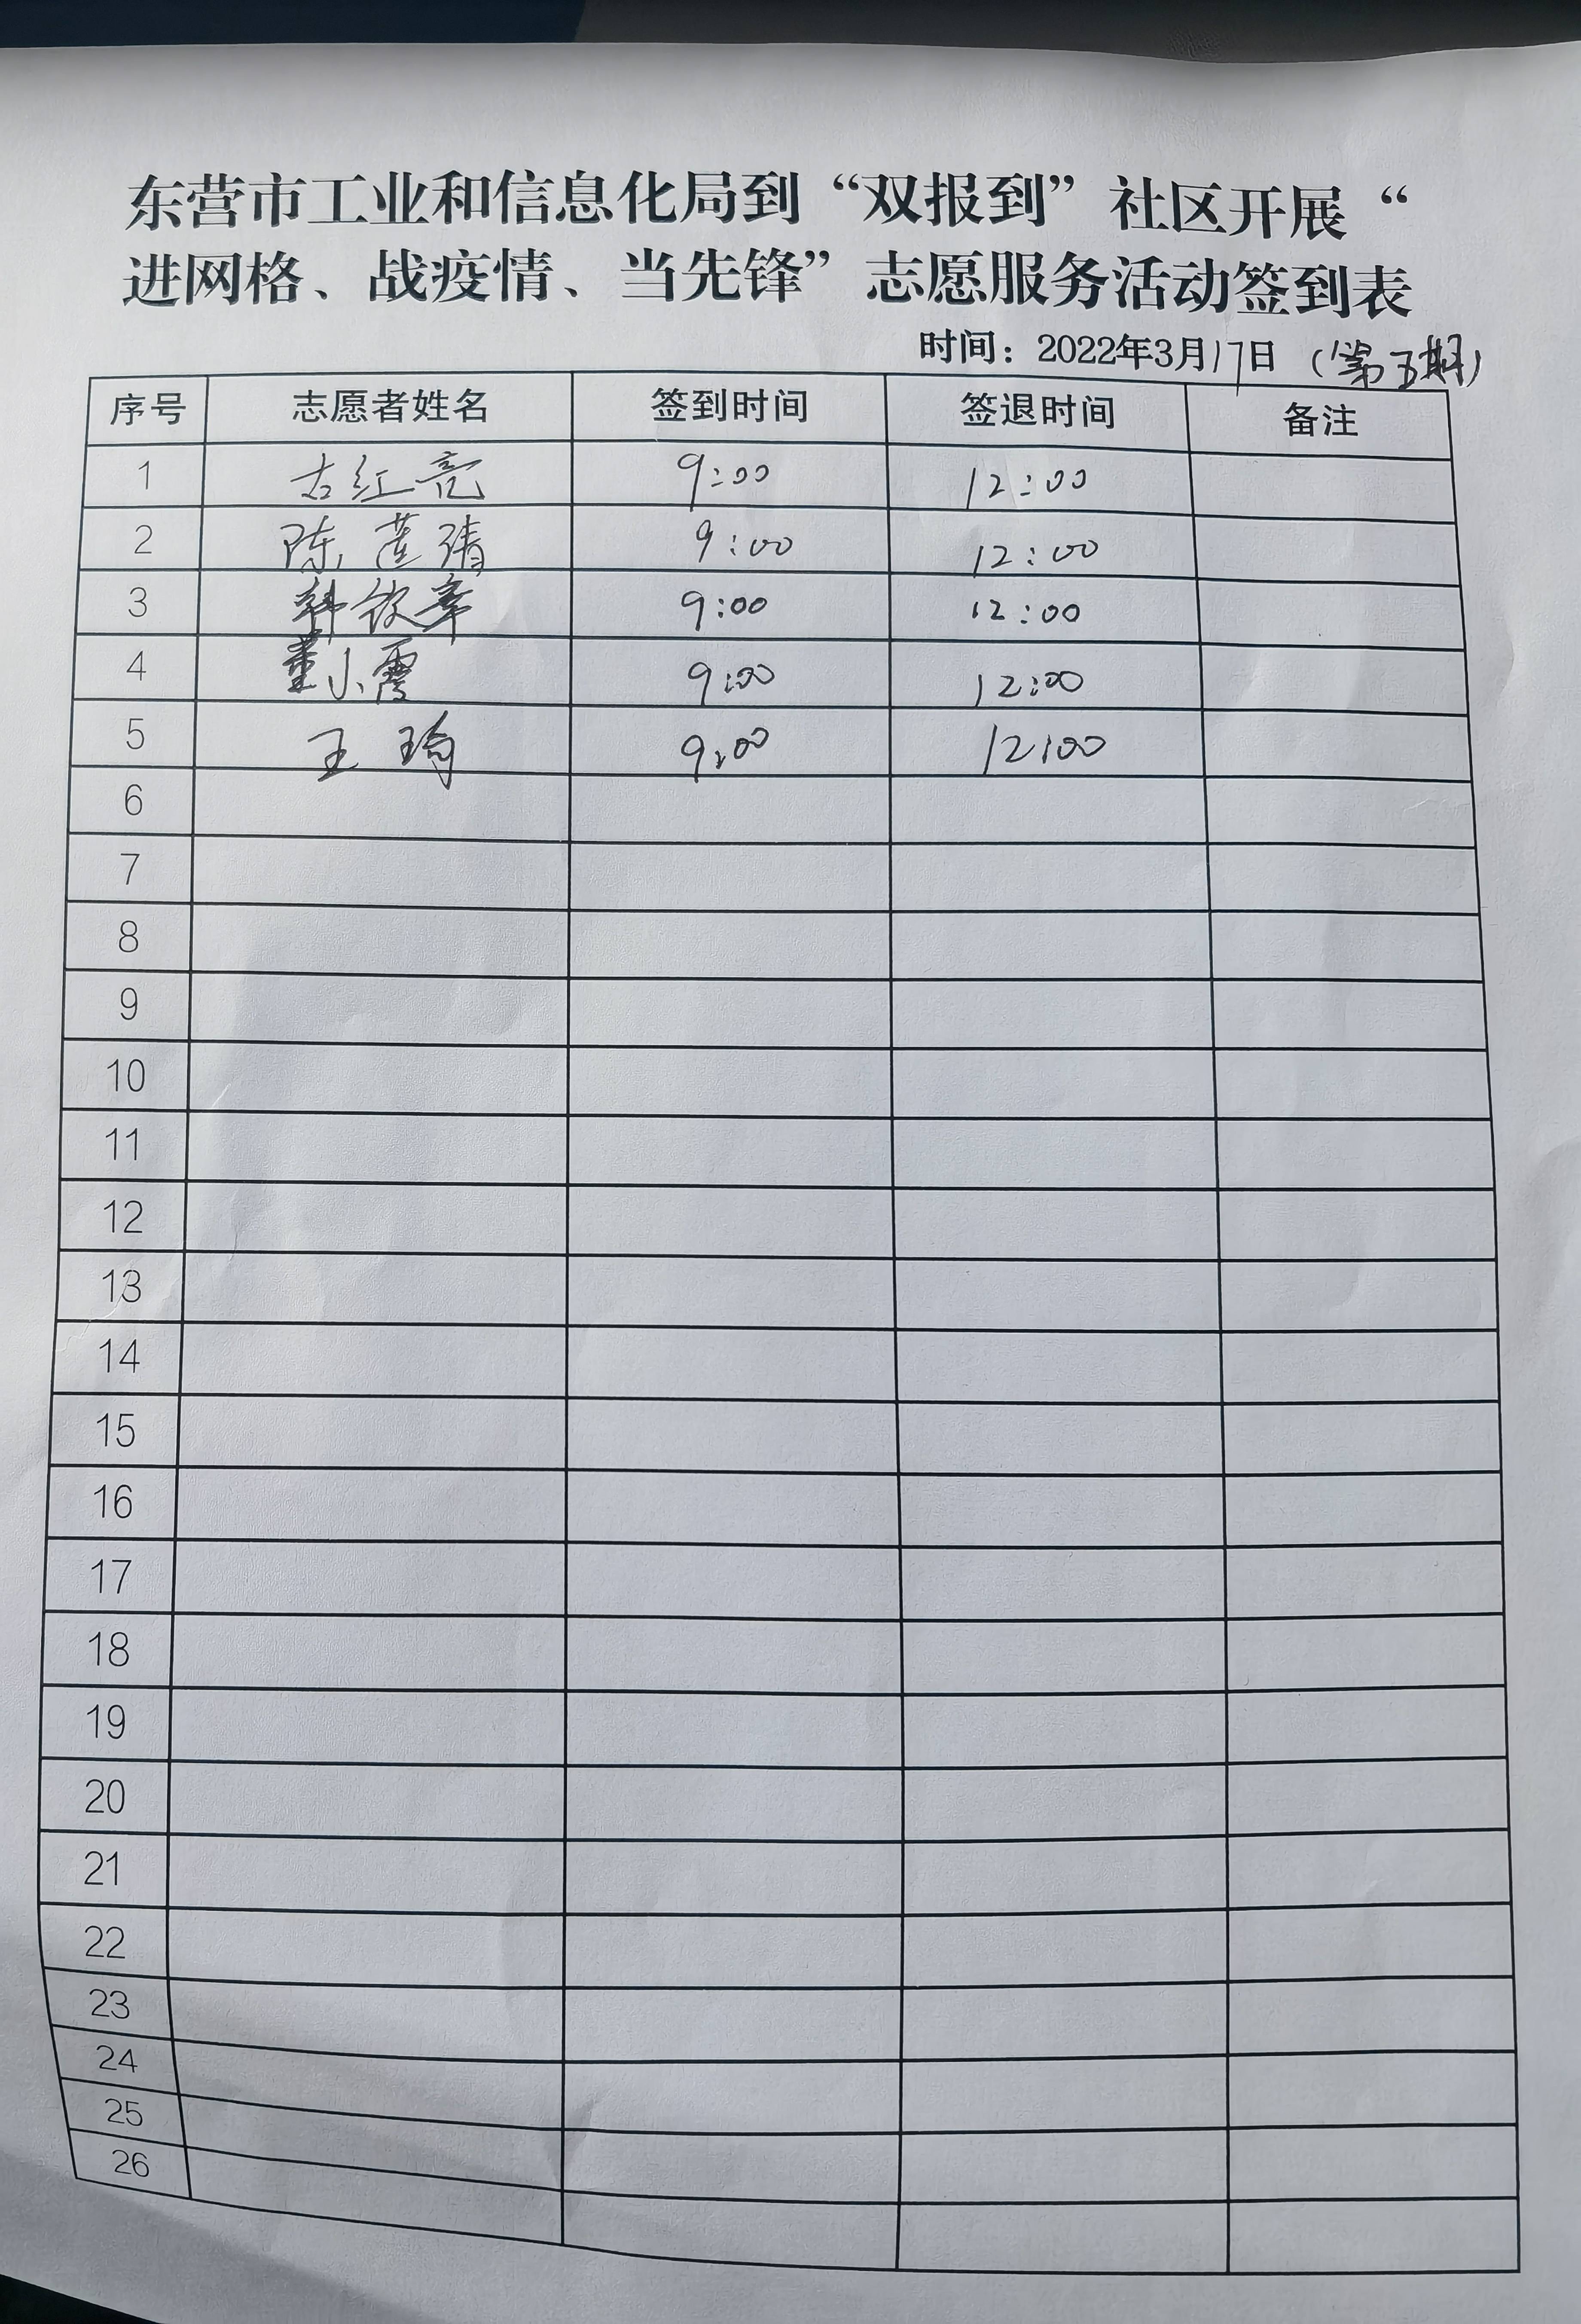 东营市工业和信息化局到“双报到”社区开展“
进网格、战疫情、当先锋”志愿服务活动签到表
时间：2022年3月17日 （第五期）
序号 志愿者姓名 签到时间 签退时间 备注
1 古红亮 9:00 12:00
2 陈莲清 9:00 12:00
3 韩钦章 9:00 12:00
4 董小霞 9:00 12:00
5 王琦 9:00 12:00
6
7
8
9
10
11
12
13
14
15
16
17
18
19
20
21
22
23
24
25
26